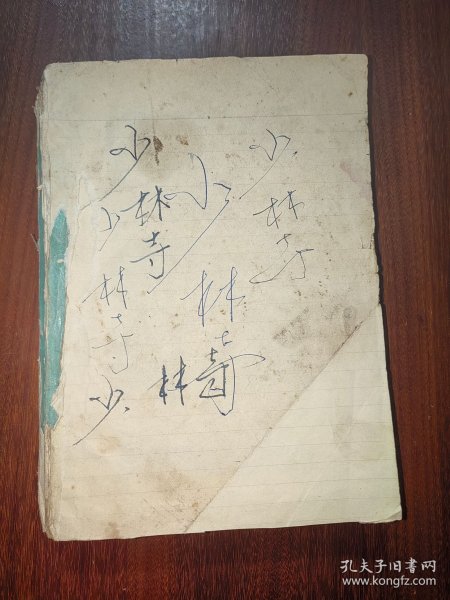 少林寺
少林寺
少林寺
少林寺
少林
孔夫子旧书网
www.kongfz.com